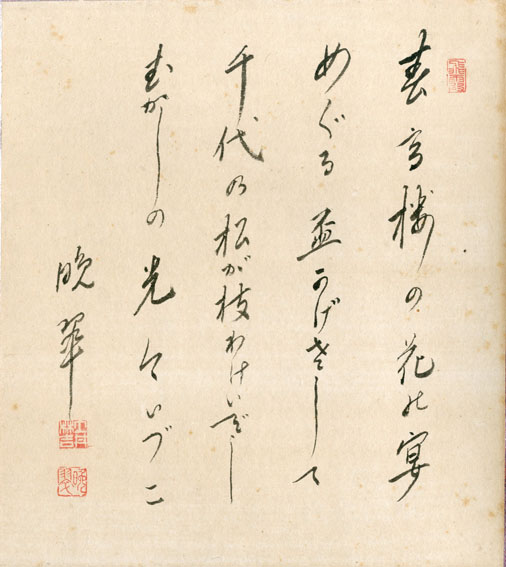 春高楼の花の宴
めぐる盃かげさして
千代の松が枝わけいでし
むかしの光今いづこ
晩翠
晩翠